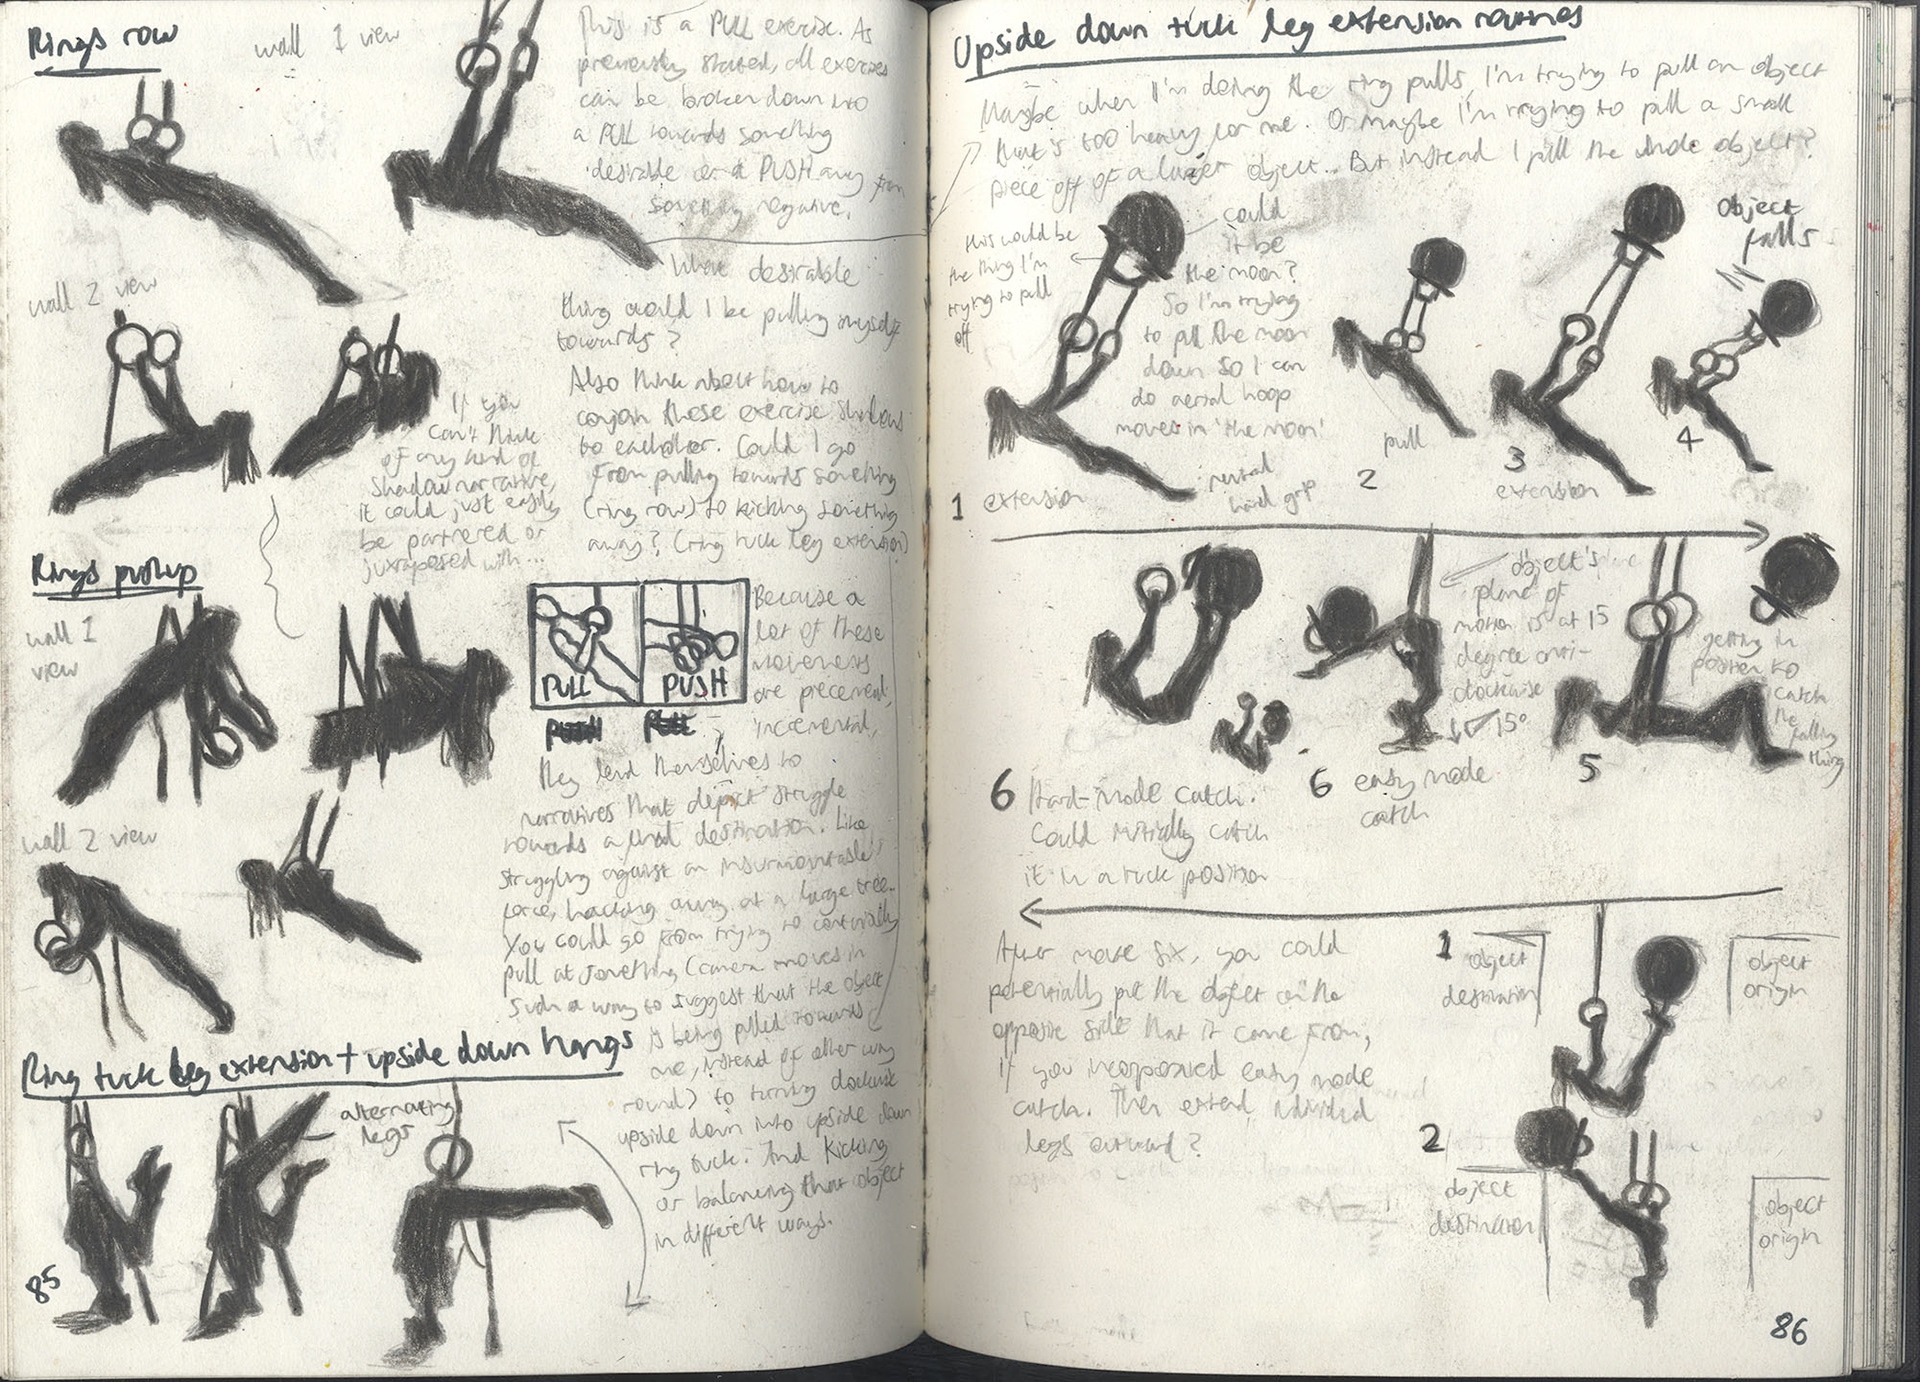 Rings row
wall 1 view
This is a PULL exercise. As
previously stated, all exercises
can be broken down into
a PULL towards something
desirable or a PUSH away from
something negative.
What desirable
thing would I be pulling myself
towards?
Also think about how to
conjoin these exercise shadows
to eachother. Could I go
from pulling towards something
(ring row) to kicking something
away? (ring tuck leg extension)
wall 2 view
If you
can't think
of any kind of
shadow narrative,
it could just easily
be partnered or
juxtaposed with...
Rings pushup
wall 1
view
PULL
PUSH
PUSH
PULL
Because a
lot of these
movements
are piecemeal,
incremental,
they lend themselves to
narratives that depict struggle
towards a final destination. Like
struggling against an insurmountable
force, hacking away at a large tree.
You could go from trying to continually
pull at something (camera moves in
such a way to suggest that the object
is being pulled towards
me, instead of other way
round) to turning clockwise
upside down into upside down
ring tuck. And kicking
or balancing that object
in different ways.
wall 2 view
Ring tuck leg extension + upside down hangs
alternating
legs
85
Upside down tuck leg extension routines
Maybe when I'm doing the ring pulls, I'm trying to pull an object
that's too heavy for me. Or maybe I'm trying to pull a small
piece off of a larger object... But instead I pull the whole object?
this would be
the thing I'm
trying to pull
off
could
it be
the moon?
So I'm trying
to pull the moon
down so I can
do aerial hoop
moves in 'the moon'
Object
falls
1 extension
neutral
hand grip
2
pull
3
extension
4
object's
plane of
motion is at 15
degree anti-
clockwise
15°
getting in
position to
catch
the
falling
thing
6 Hard-mode catch.
Could initially catch
it in a tuck position
6 easy mode
catch
5
After move six, you could
potentially put the object on the
opposite side that it came from,
if you incorporated easy mode
catch. Then extend individual
legs outward?
1
object
destination
object
origin
2
object
destination
object
origin
86